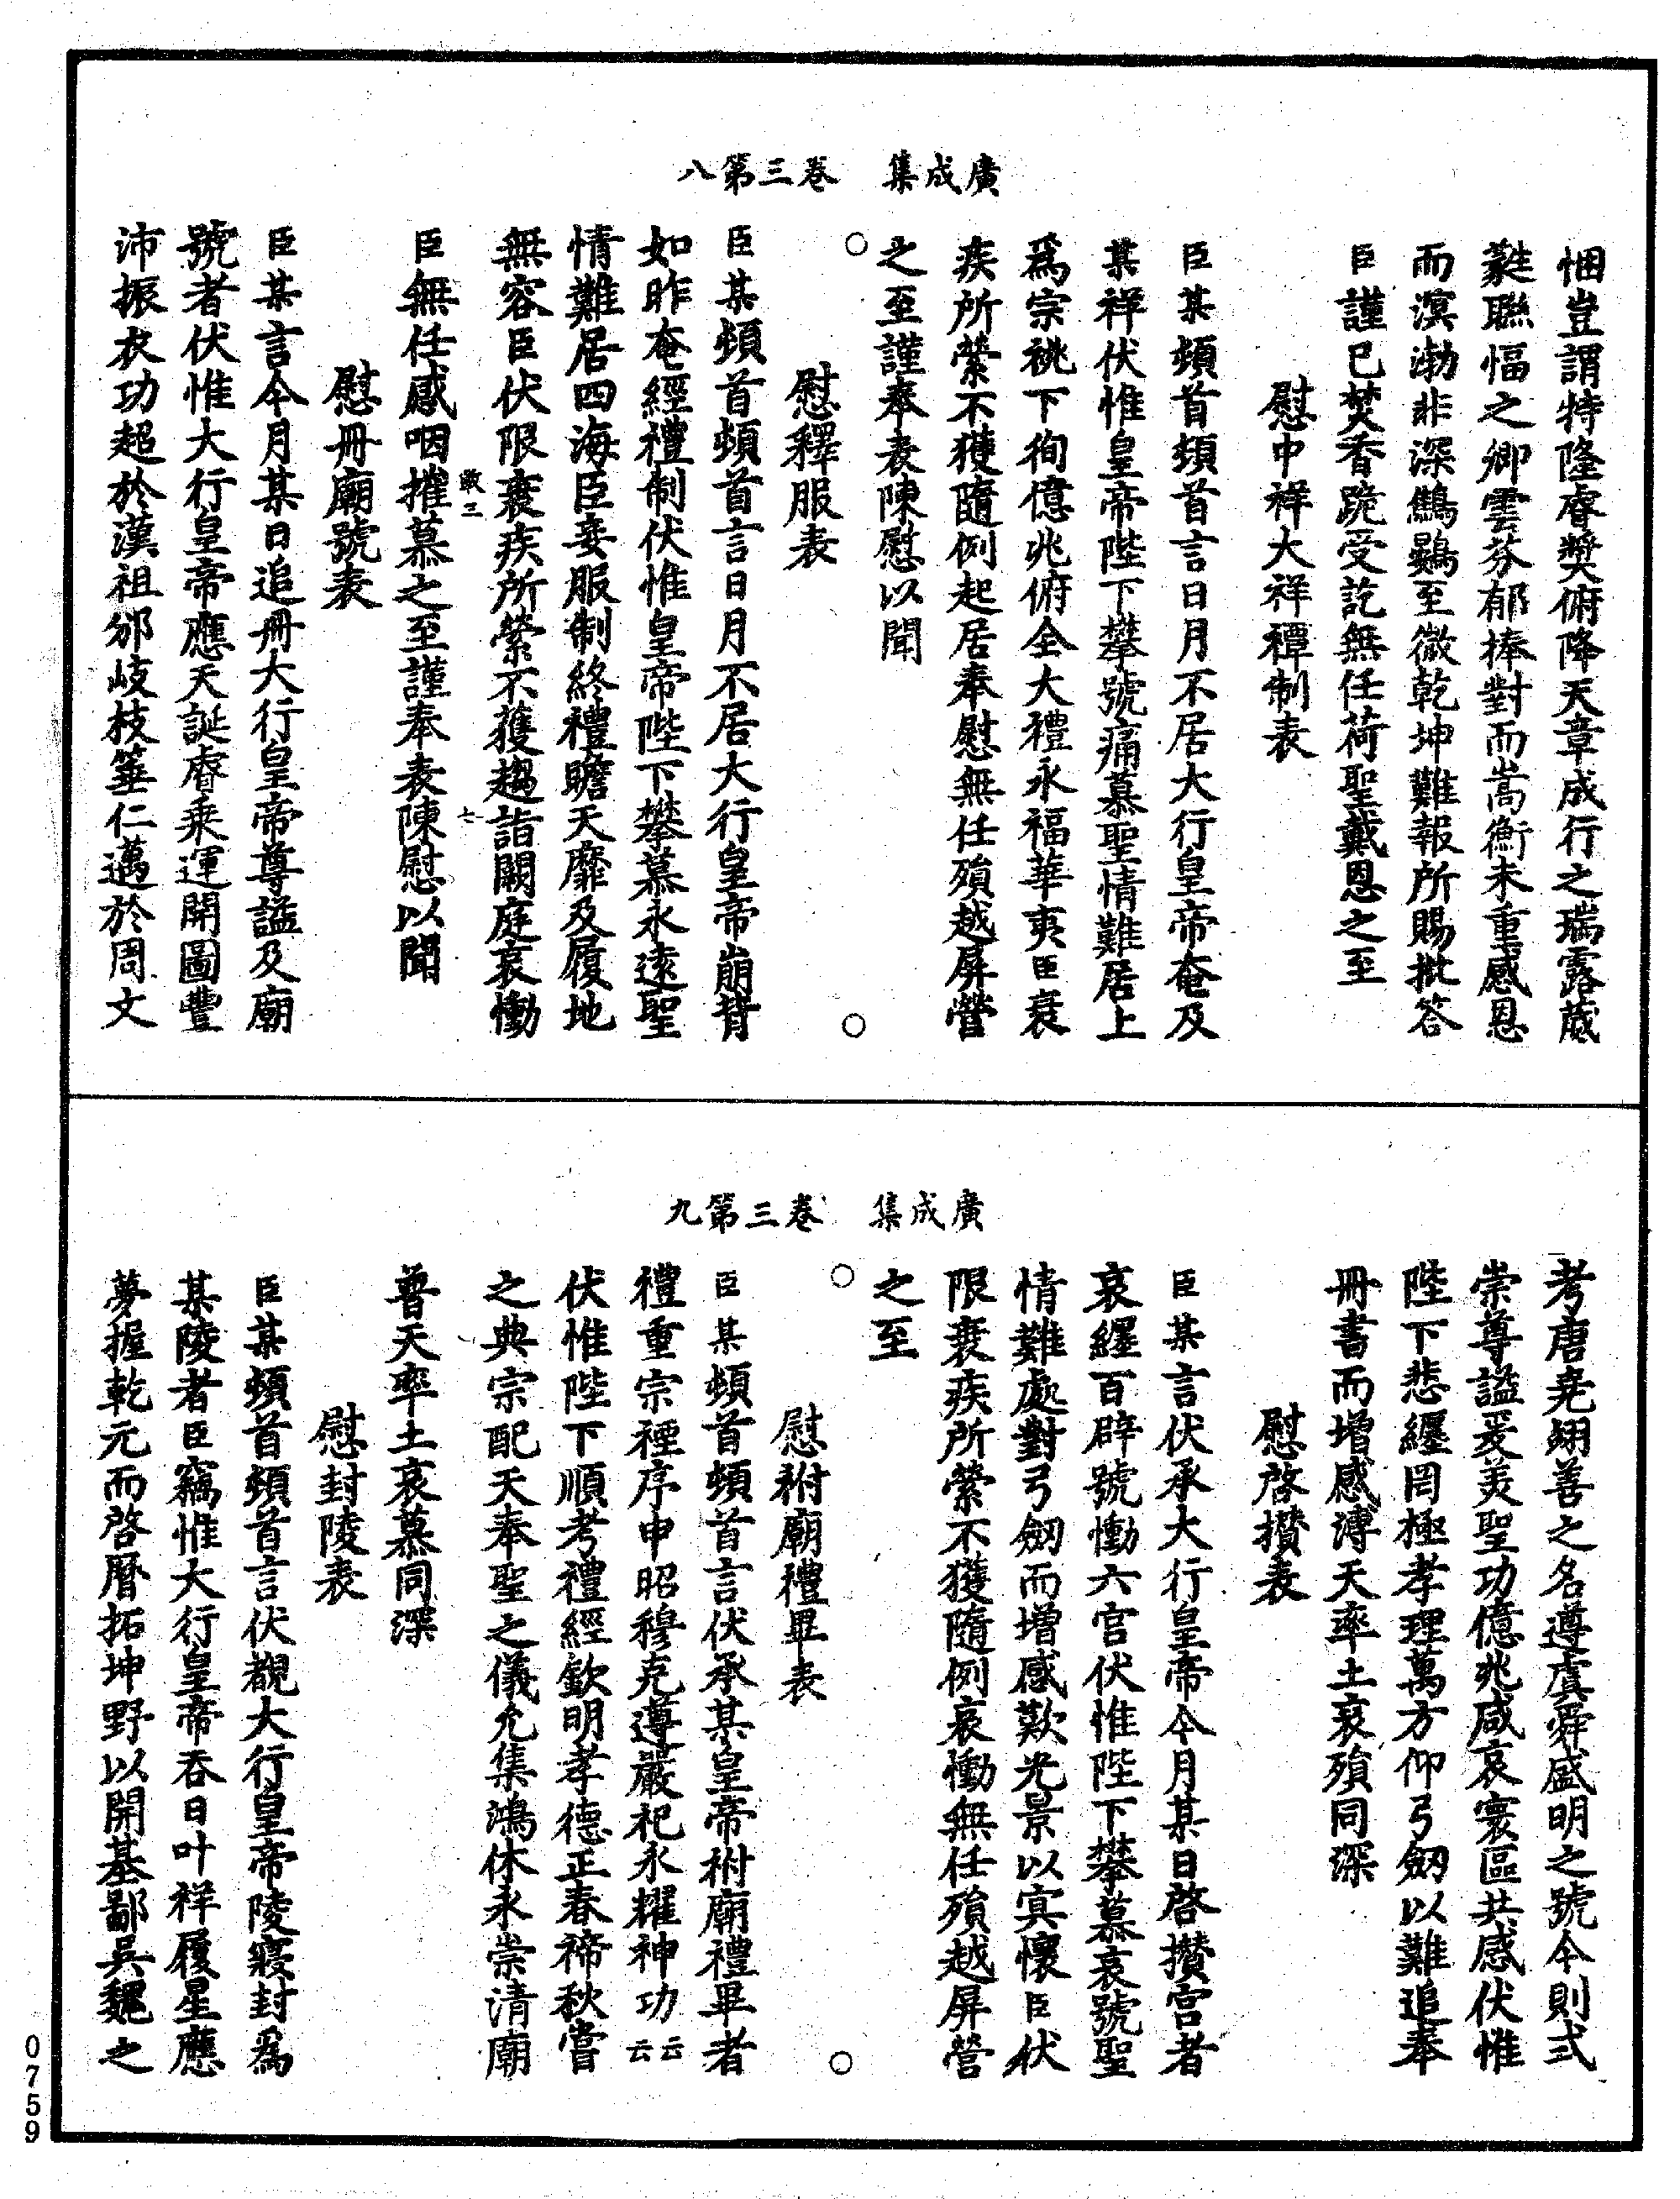 廣成集　卷三第八
悃豈謂特隆睿獎俯降天章成行之瑞露葳
蕤聯幅之卿雲芬郁捧對而嵩衡未重感恩
而溟渤非深鷦鷃至微乾坤難報所賜批答
臣謹已焚香跪受訖無任荷聖戴恩之至
慰中祥大祥禫制表
臣某頓首頓首言日月不居大行皇帝奄及
某祥伏惟皇帝陛下攀號痛慕聖情難居上
爲宗祧下徇億兆俯全大禮永福華夷臣衰
疾所縈不獲隨例起居奉慰無任殞越屏營
之至謹奉表陳慰以聞
慰釋服表
臣某頓首頓首言日月不居大行皇帝崩背
如昨奄經禮制伏惟皇帝陛下攀慕永遠聖
情難居四海臣妾服制終禮瞻天靡及履地
無容臣伏限衰疾所縈不獲趨詣闕庭哀慟
臣無任感咽摧慕之至謹奉表陳慰以聞
慰冊廟號表
臣某言今月某日追冊大行皇帝尊諡及廟
號者伏惟大行皇帝應天誕睿乘運開圖豐
沛振衣功超於漢祖邠岐枝箠仁邁於周文
廣成集　卷三第九
考唐堯翊善之名遵虞舜盛明之號今則式
崇尊諡爰美聖功億兆咸哀寰區共感伏惟
陛下悲纏罔極孝理萬方仰弓劒以難追奉
冊書而增感溥天率土哀殞同深
慰啓攢表
臣某言伏承大行皇帝今月某日啓攢宮者
哀纏百辟號慟六宮伏惟陛下攀慕哀號聖
情難處對弓劒而增感歎光景以寘懷臣伏
限衰疾所縈不獲隨例哀慟無任殞越屏營
之至
慰祔廟禮畢表
臣某頓首頓首言伏承某皇帝祔廟禮畢者
禮重宗禋序申昭穆克遵嚴祀永耀神功云云
伏惟陛下順考禮經欽明孝德正春禘秋嘗
之典宗配天奉聖之儀允集鴻休永崇清廟
普天率土哀慕同深
慰封陵表
臣某頓首頓首言伏覩大行皇帝陵寢封爲
某陵者臣竊惟大行皇帝吞日叶祥履星應
夢握乾元而啓曆拓坤野以開基鄙吳魏之
0759